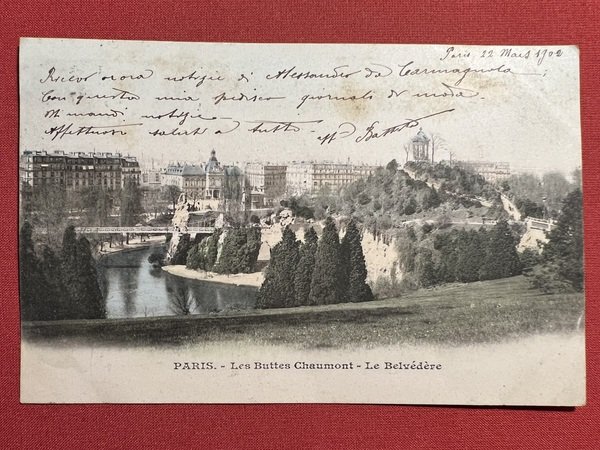 Paris 22 Mars 1902
Ricevo ora notizie di Alessandro da Carmagnola;
Con questa mia spedisco giornali di moda.
Mi mandi notizie
Affettuosi saluti a tutti Battista
PARIS. - Les Buttes Chaumont - Le Belvédère